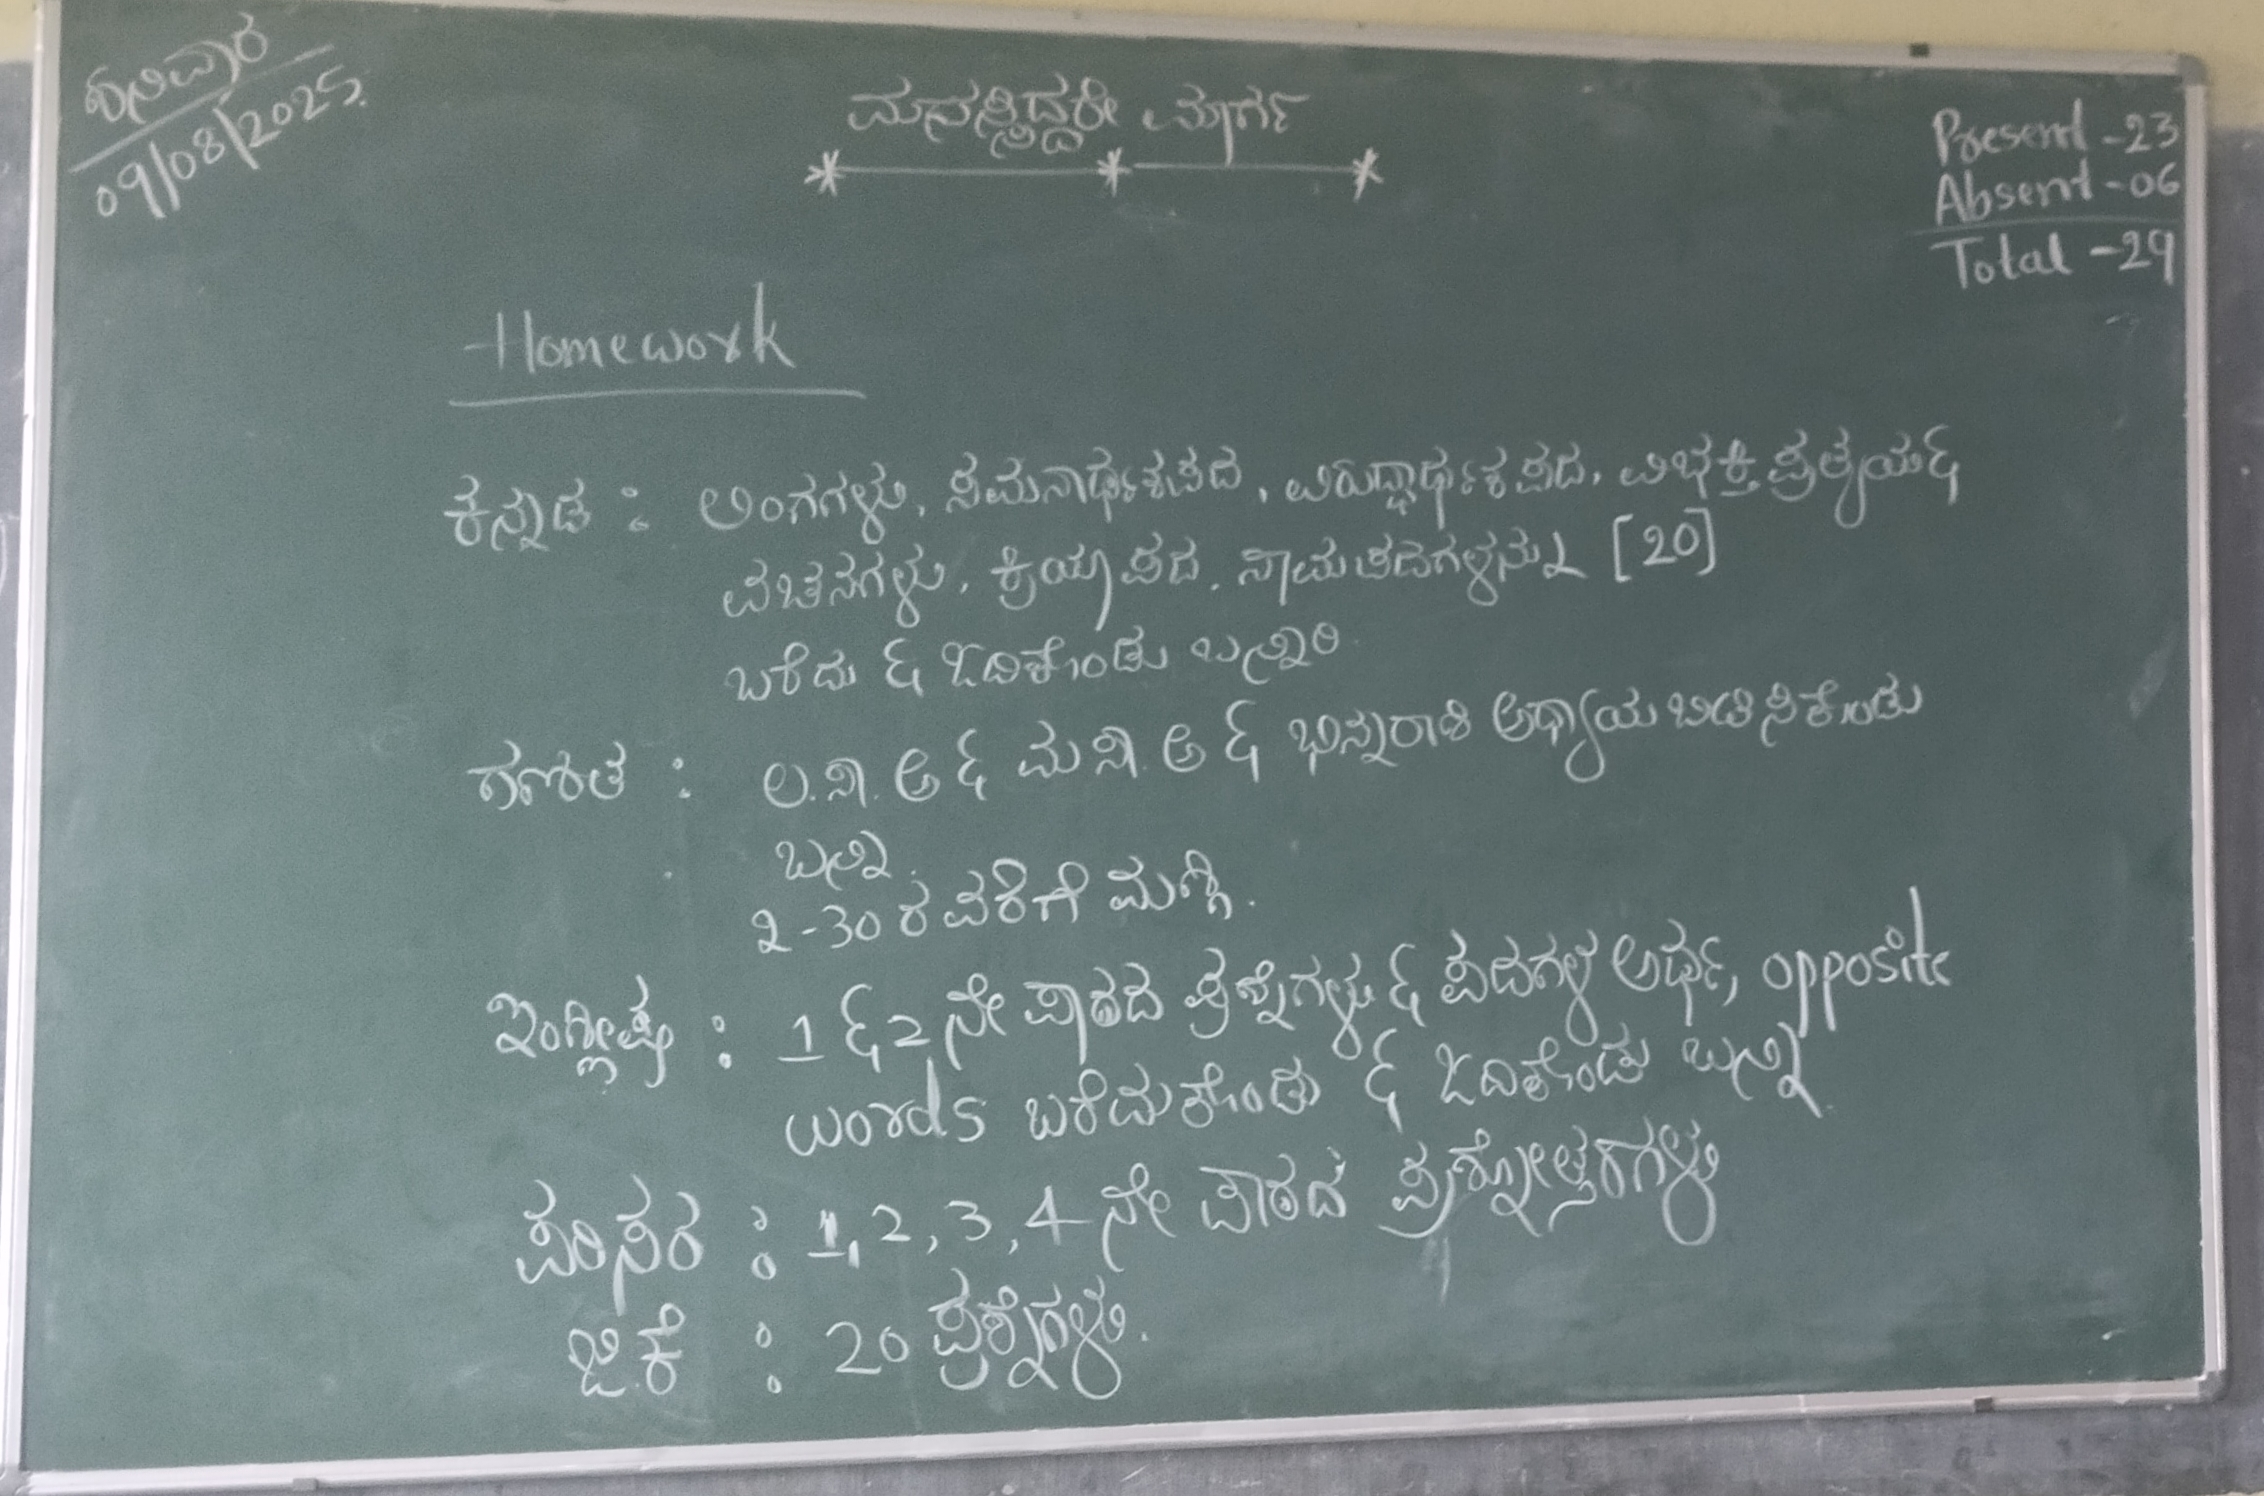 ಶನಿವಾರ
09/08/2025.
ಮನಸ್ಸಿದ್ದರೇ ಮಾರ್ಗ
Present - 23
Absent - 06
Total - 29
Homework
ಕನ್ನಡ : ಲಿಂಗಗಳು, ಸಮನಾರ್ಥಕಪದ, ವಿರುದ್ಧಾರ್ಥಕಪದ, ವಿಭಕ್ತಿ ಪ್ರತ್ಯಯ &
ವಚನಗಳು, ಕ್ರಿಯಾಪದ, ನಾಮಪದಗಳನ್ನು [20]
ಬರೆದು & ಓದಿಕೊಂಡು ಬನ್ನಿರಿ.
ಗಣಿತ : ಲ.ಸಾ.ಅ & ಮ.ಸಾ.ಅ & ಭಿನ್ನರಾಶಿ ಅಧ್ಯಾಯ ಬಿಡಿಸಿಕೊಂಡು
ಬನ್ನಿ.
2-30 ರ ವರೆಗೆ ಮಗ್ಗಿ.
ಇಂಗ್ಲೀಷ : 1 & 2 ನೇ ಪಾಠದ ಪ್ರಶ್ನೆಗಳು & ಪದಗಳ ಅರ್ಥ, opposite
words ಬರೆದುಕೊಂಡು & ಓದಿಕೊಂಡು ಬನ್ನಿ.
ಪರಿಸರ : 1, 2, 3, 4 ನೇ ಪಾಠದ ಪ್ರಶ್ನೋತ್ತರಗಳು
ಜಿ.ಕೆ : 20 ಪ್ರಶ್ನೆಗಳು.